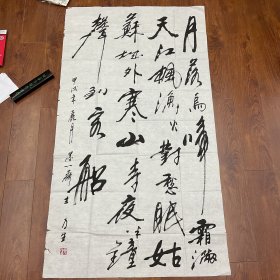 月落烏啼霜滿
天江楓漁火對愁眠姑
蘇城外寒山寺夜半鐘
聲到客船